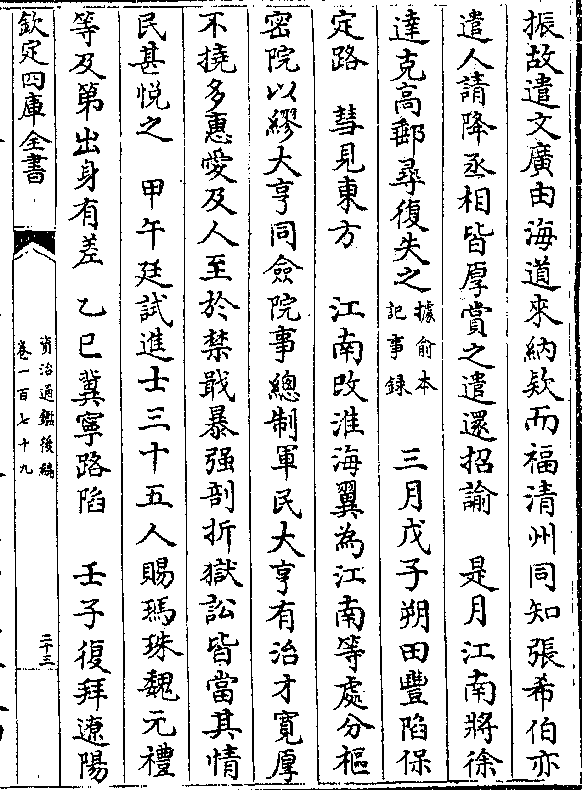 振故遣文廣由海道來納欵而福清州同知張希伯亦
遣人請降丞相皆厚賞之遣還招諭　是月江南將徐
達克高郵尋復失之據俞本記事録　三月戊子朔田豐陷保
定路　彗見東方　江南改淮海翼為江南等處分樞
密院以繆大亨同僉院事總制軍民大亨有治才寛厚
不撓多惠愛及人至於禁戢暴强剖折獄訟皆當其情
民甚悦之　甲午廷試進士三十五人賜瑪珠魏元禮
等及第出身有差　乙巳冀寧路陷　壬子復拜遼陽
欽定四庫全書
資治通鑑後編
卷一百七十九
二十三